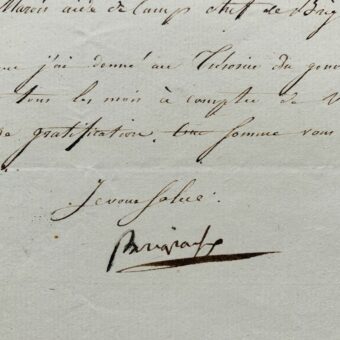 Marois aide de Camp chef de Brig
que j'ai donné au Trésorier du gouv
tous les mois à compter de V
de gratification. Cette Somme vous
Je vous Salue.